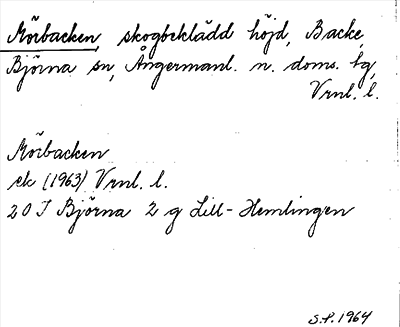 Mörbacken, skogbeklädd höjd, Backe,
Björna sn, Ångermanl. n. doms. lg,
Vrnl. l.
Mörbacken
ek (1963) Vrnl. l.
20 I Björna 2 g Lill-Hemlingen
S.P. 1964